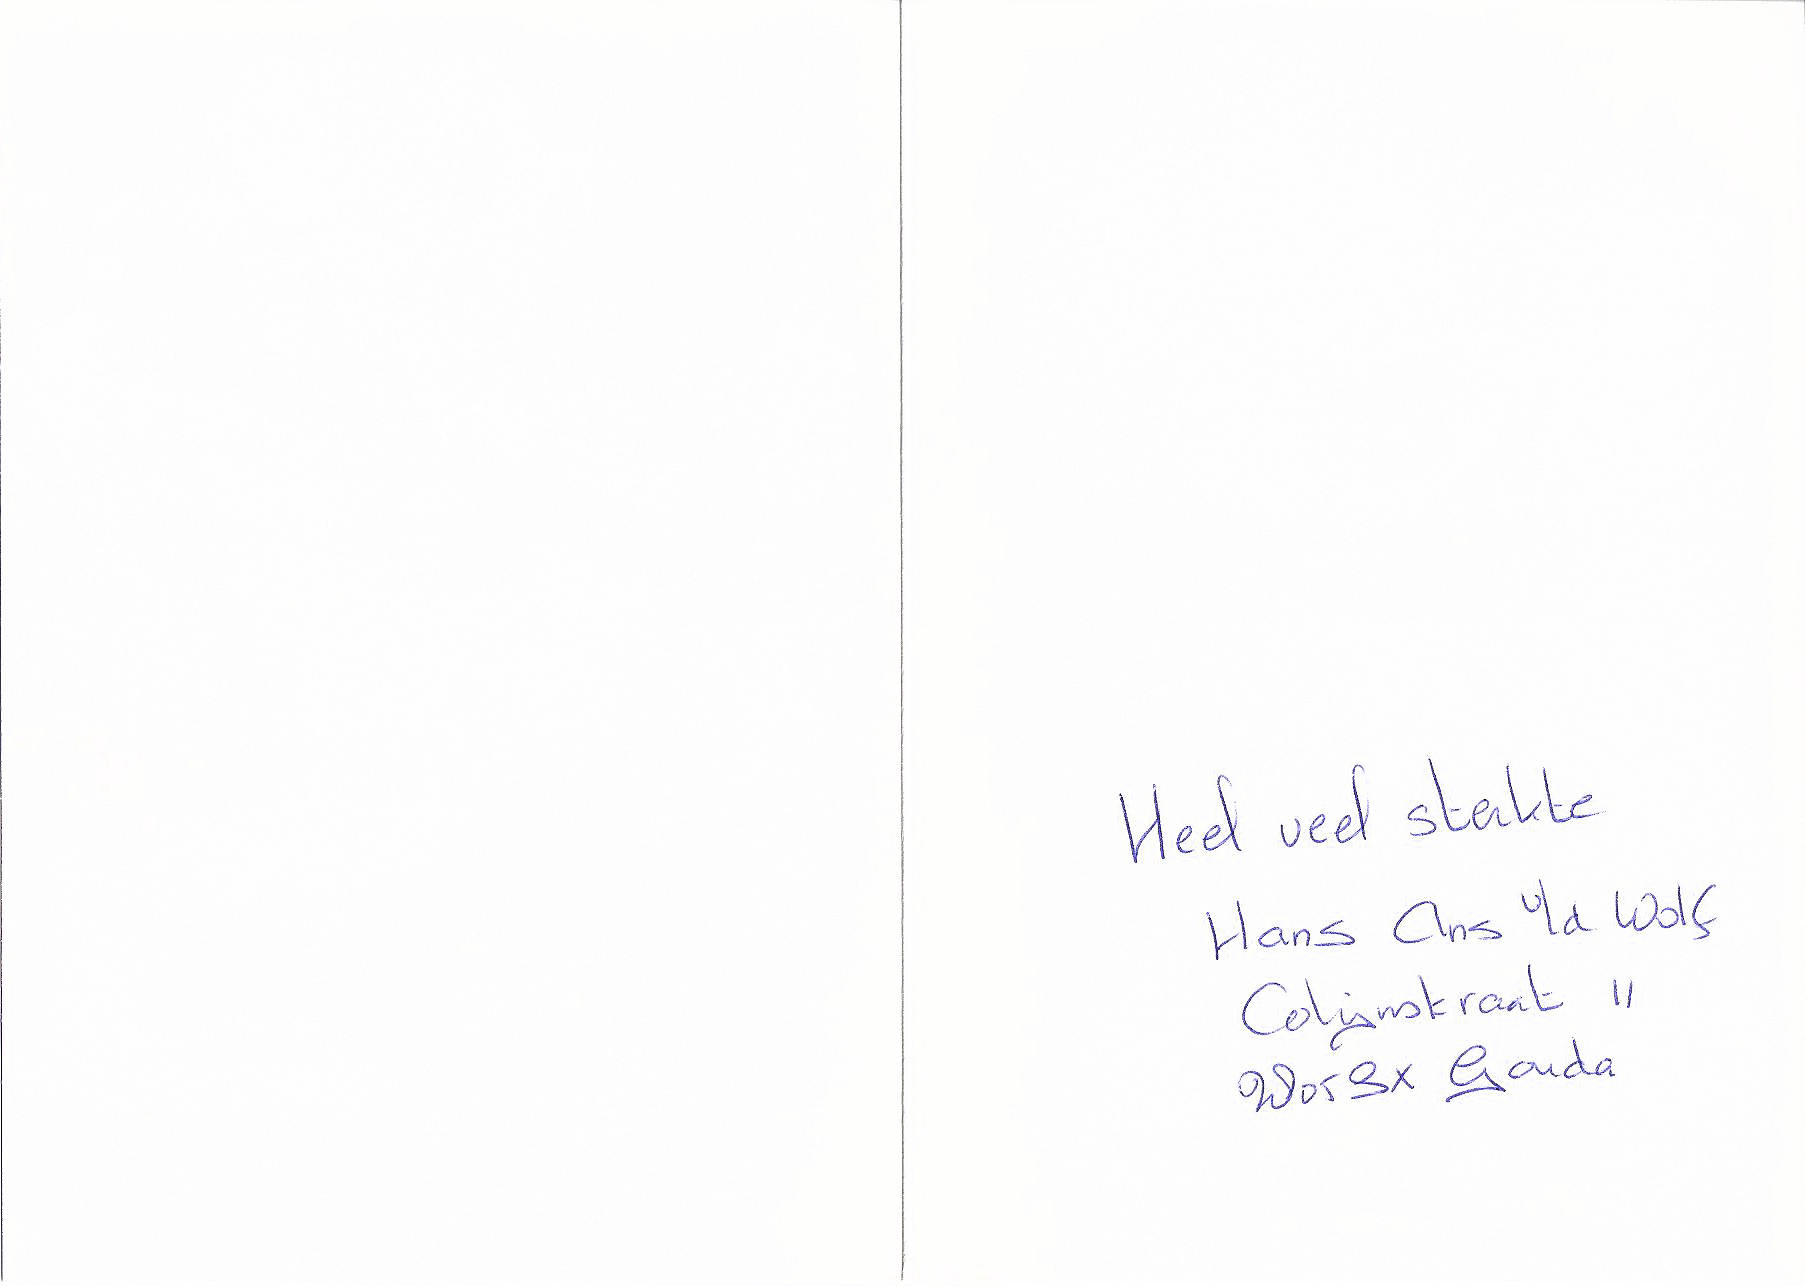 Heel veel sterkte
Hans Ans v/d Wolf
Colijnstraat 11
Gouda